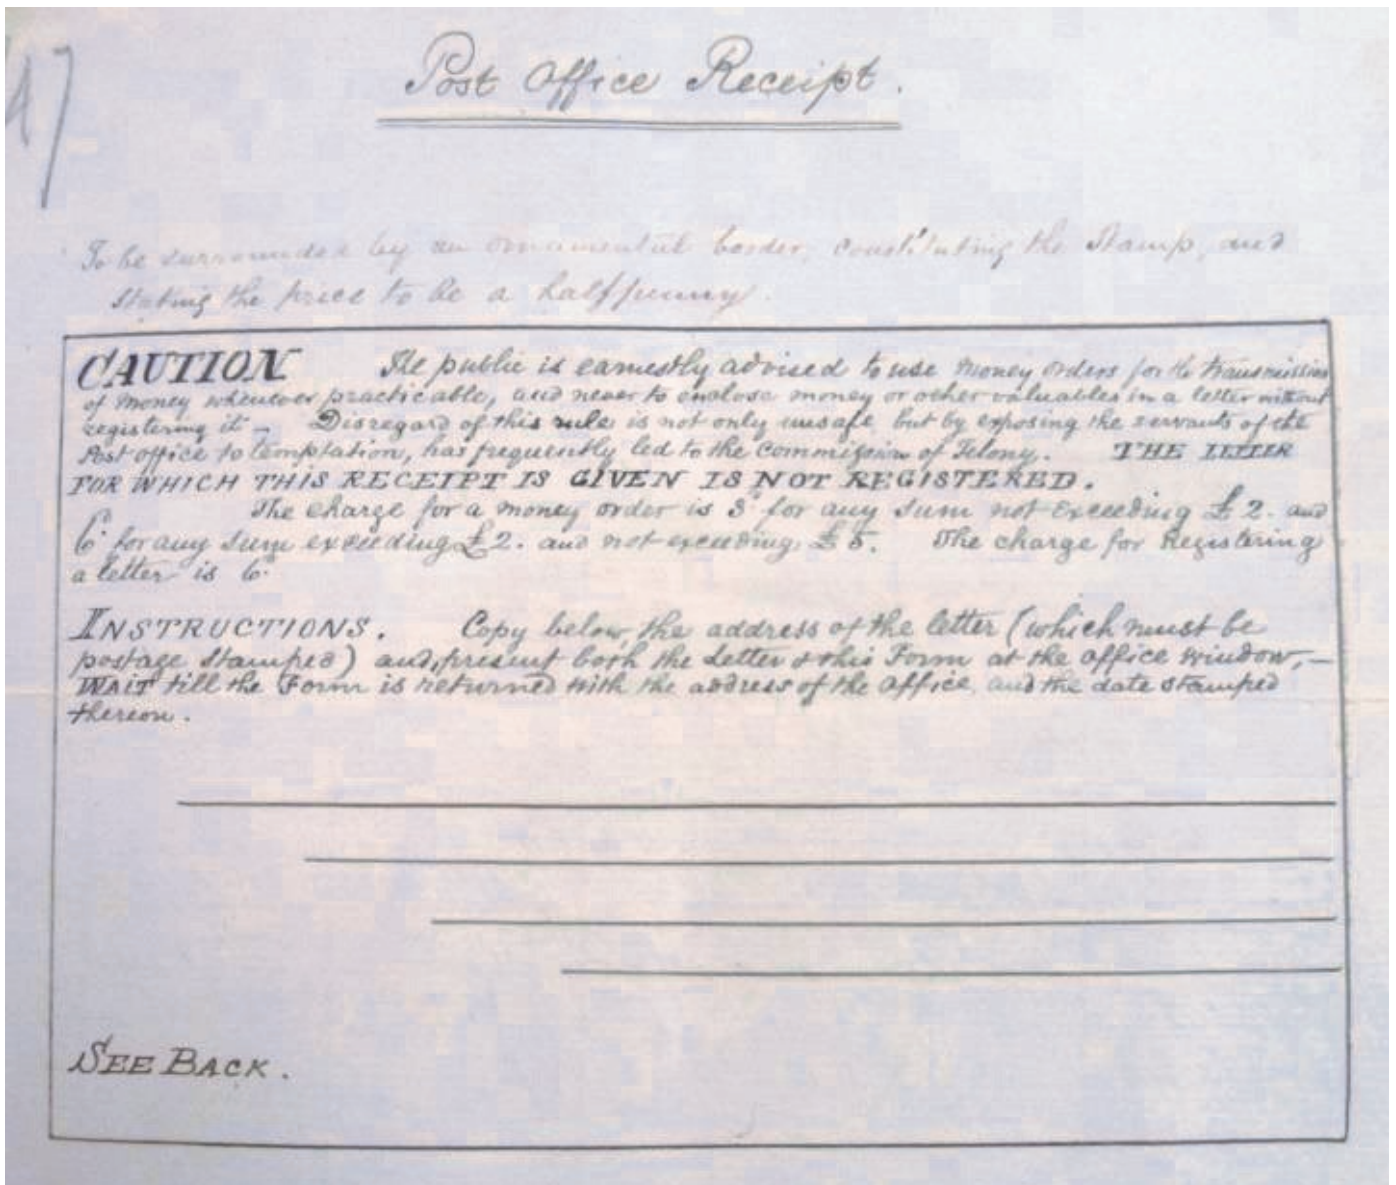 47
Post Office Receipt.
To be surrounded by an ornamental border, constituting the Stamp, and
stating the price to be a halfpenny.
CAUTION The public is earnestly advised to use money orders for the transmission
of money whenever practicable, and never to enclose money or other valuables in a letter without
registering it – Disregard of this rule is not only unsafe, but by exposing the servants of the
Post office to temptation, has frequently led to the Commission of Felony. THE LETTER
FOR WHICH THIS RECEIPT IS GIVEN IS NOT REGISTERED.
The charge for a money order is 3d for any sum not exceeding £2. and
6d for any sum exceeding £2. and not exceeding £5. The charge for Registering
a letter is 6d
INSTRUCTIONS. Copy below, the address of the letter (which must be
postage stamped) and, present both the Letter & this Form at the office window,—
WAIT till the Form is returned with the address of the office, and the date stamped
thereon.
SEE BACK.